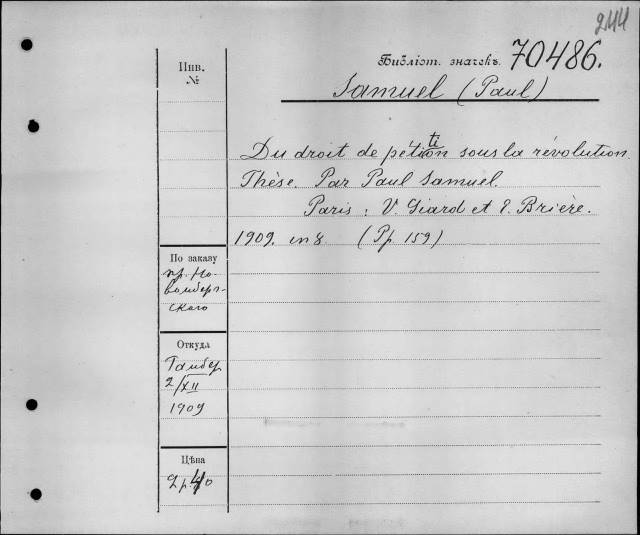 244
Библіот. значекъ 70486.
Samuel (Paul)
Инв.
№
Du droit de pétition sous la révolution.
Thèse. Par Paul Samuel.
Paris: V. Giard et E. Brière.
1909. in 8. (Pp. 159)
По заказу
пр. Но-
вомберг-
скаго
Откуда
Гамбер
2/XII
1909
Цѣна
2 р. 40